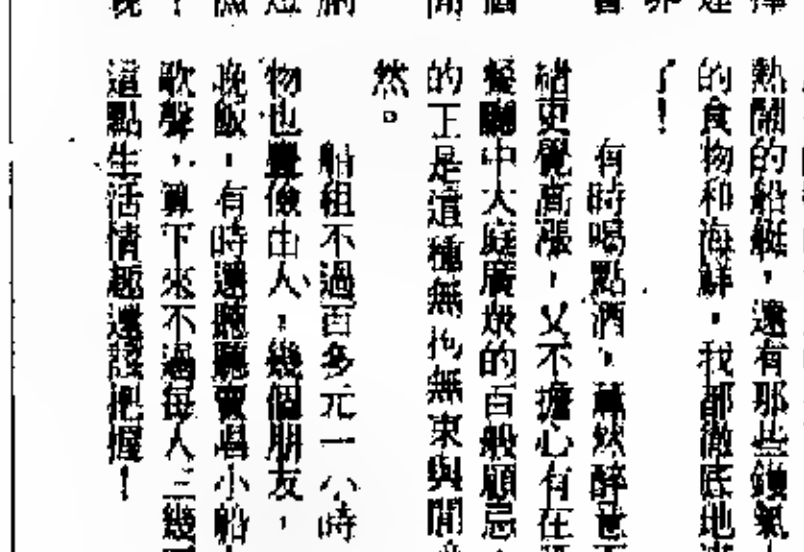 熱鬧的船艇，還有那些鑊氣
的食物和海鮮，我都澈底地
了！
有時喝點酒，醉意
緒更覺高漲，又不擔心有在
餐廳中大庭廣眾的百般顧忌，
的正是這種無拘無束與閒
然。
船租不過百多元一小時
物也豐儉由人，幾個朋友，
晚飯，有時還聽聽賣唱小船
歌聲，算下來不過每人三幾
這點生活情趣還該把握！